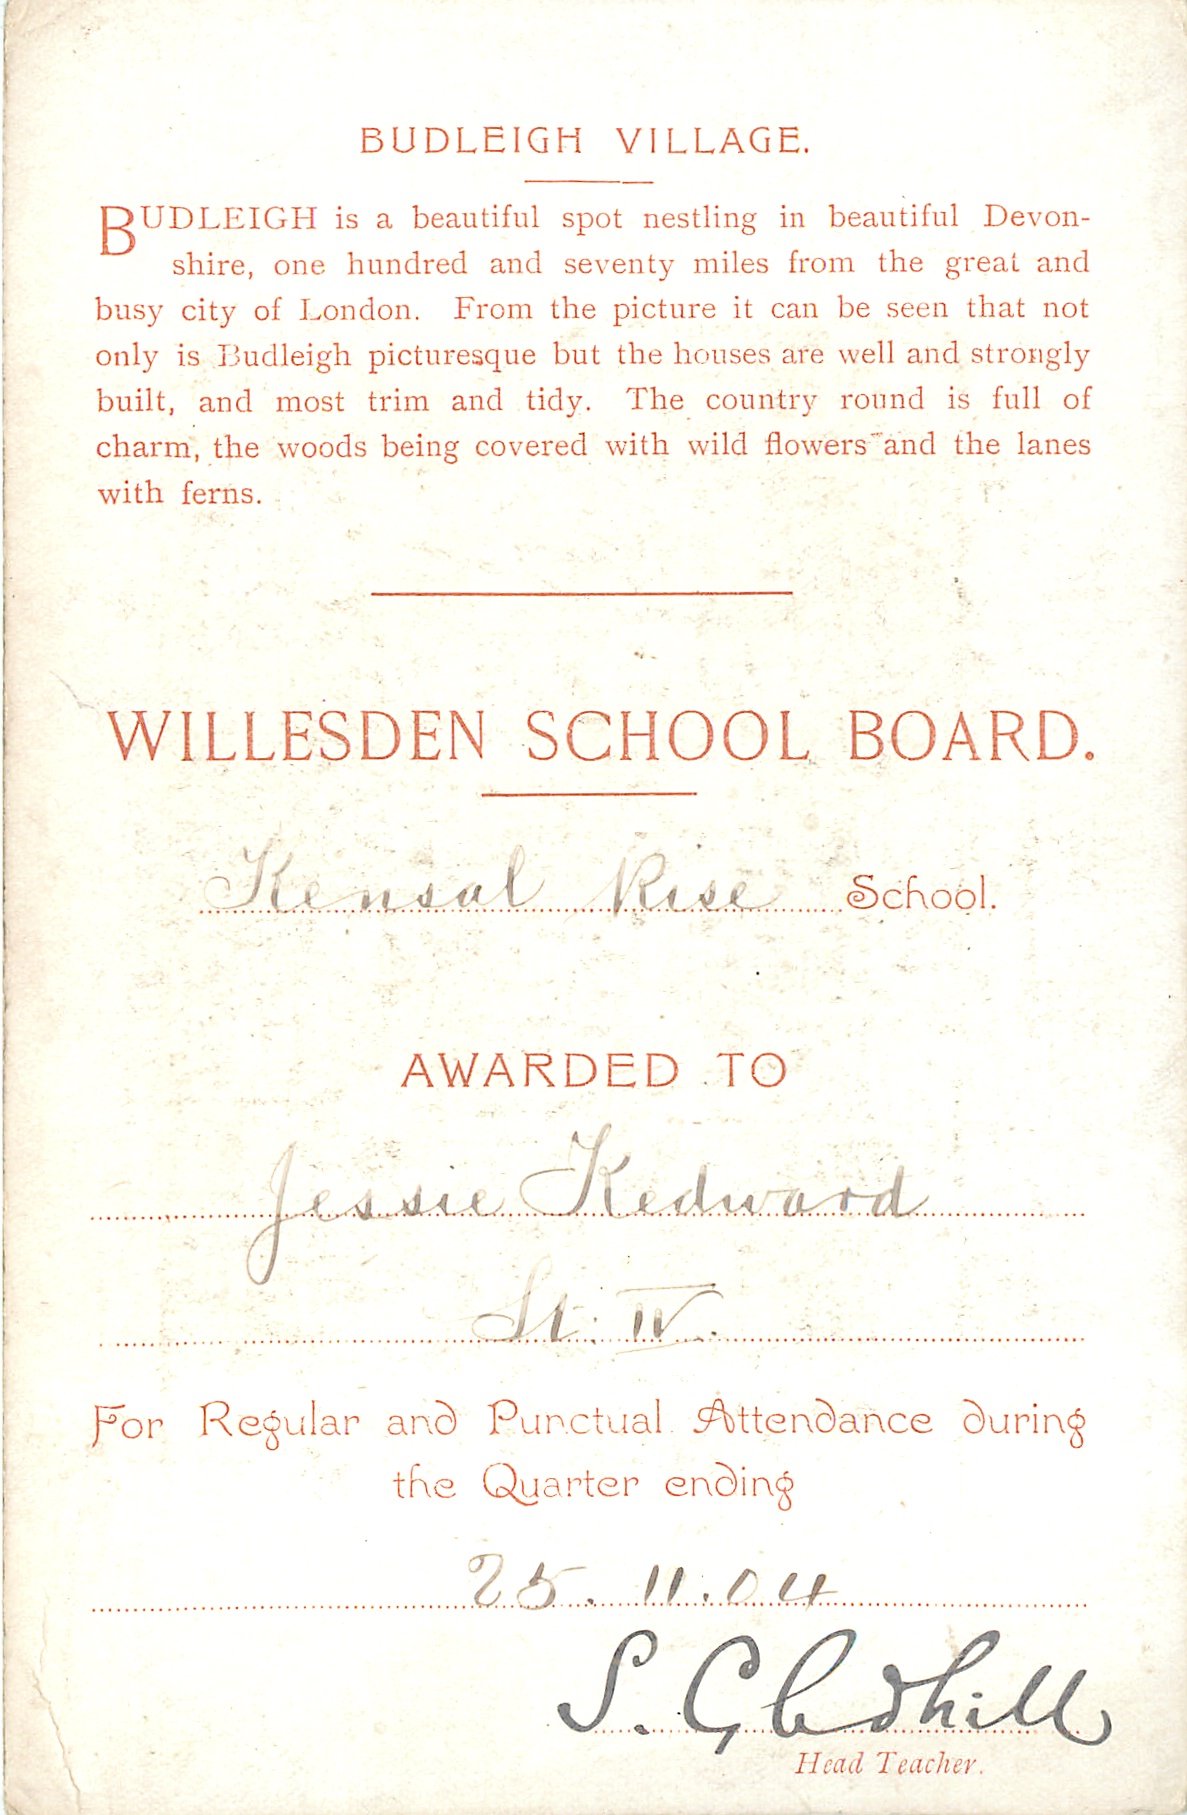 BUDLEIGH VILLAGE.
BUDLEIGH is a beautiful spot nestling in beautiful Devon-
shire, one hundred and seventy miles from the great and
busy city of London. From the picture it can be seen that not
only is Budleigh picturesque but the houses are well and strongly
built, and most trim and tidy. The country round is full of
charm, the woods being covered with wild flowers and the lanes
with ferns.
WILLESDEN SCHOOL BOARD.
Kensal Rise School.
AWARDED TO
Jessie Kedward
St. IV.
For Regular and Punctual Attendance during
the Quarter ending
25.11.04
S. Gledhill
Head Teacher.